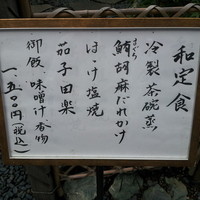 和定食
冷製茶碗蒸
鮪胡麻だれかけ
まぐろ
ほっけ塩焼
茄子田楽
御飯、味噌汁香物
一、五〇〇円(税込)